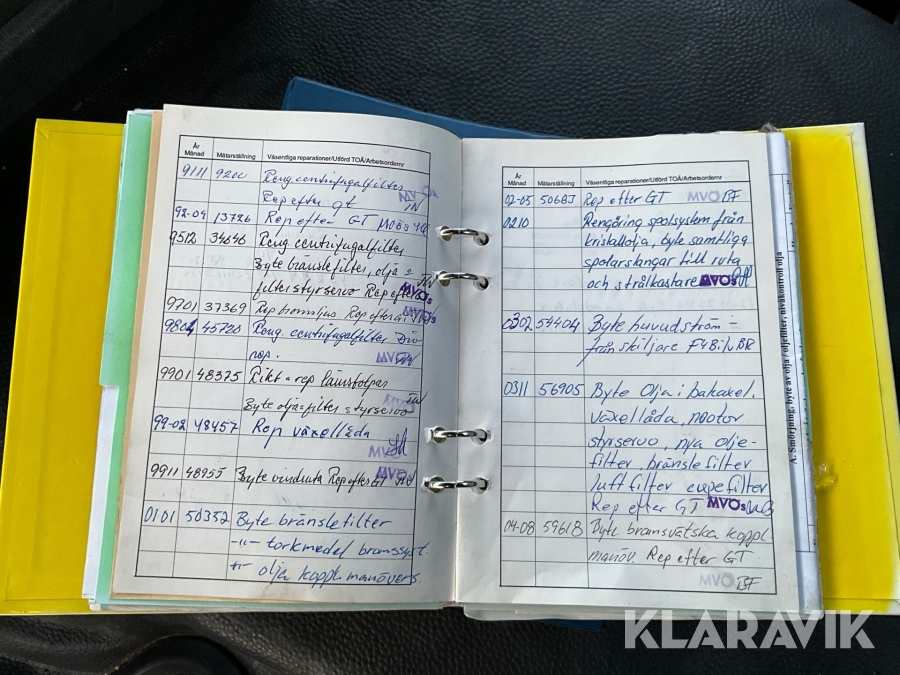 År
Månad
Mätarställning
Väsentliga reparationer/Utförd TOÅ/Arbetsordernr
9111 9200 Reng centrifugalfilter
Rep efter gt
92-09 13726 Rep efter GT MVOs
9512 34646 Reng centrifugalfilter,
Byte bränslefilter, olja
filter styrservo Rep efter MVOs
9701 37369 Rep efter GT MVOs
9804 45720 Reng. centrifugalfilter
rep. MVOs
9901 48375 Rikt o rep
Byte olja+filter styrservo
99-02 48457 Rep växellåda
MVOs
9911 48955 Byte vindruta Rep efter GT MVOs
0101 50352 Byte bränslefilter
-"- torkmedel bromssyst.
-"- olja koppl. manövers.
År
Månad
Mätarställning
Väsentliga reparationer/Utförd TOÅ/Arbetsordernr
02-05 Rep efter GT MVO BF
0210 Rengöring spolsystem från
kristallolja, byte samtliga
spolarslangar till ruta
och strålkastare MVOs
0302 54404 Byte huvudström-
frånskiljare
0311 56905 Byte Olja i bakaxel,
växellåda, motor
styrservo, nya olje-
filter, bränslefilter
luftfilter
Rep efter GT MVOs
04-08 59618 Byte bromsvätska koppl.
manöv. Rep efter GT
MVO BF
A. Smörjning, byte av olja / oljefilter, nivåkontroll olja
KLARAVIK